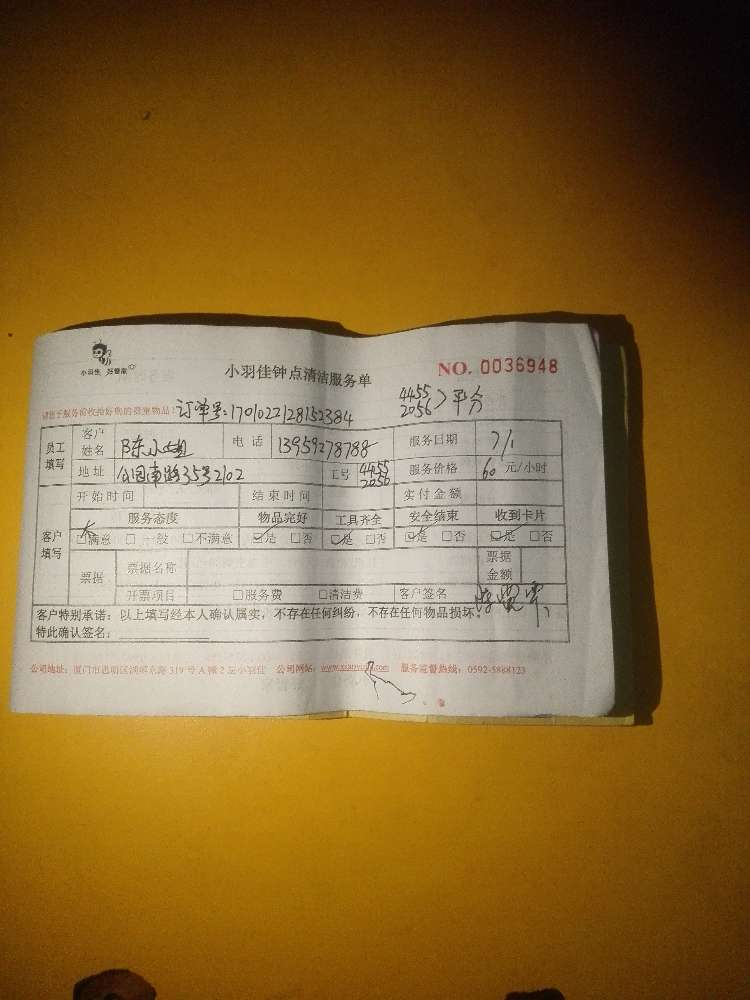 小羽佳 好管家
小羽佳钟点清洁服务单
NO. 0036948
请您于服务前收拾好您的贵重物品！
订单号:1701022128152384
4455
2056 > 平分
员工填写 客户姓名 陈小姐 电话 13959278788 服务日期 7/1
地址 公园南路35号2102 工号 4455 2056 服务价格 60 元/小时
客户填写 开始时间 结束时间 实付金额
服务态度 物品完好 工具齐全 安全结束 收到卡片
☑满意 □一般 □不满意 ☑是 □否 ☑是 □否 ☑是 □否 ☑是 □否
票据 票据名称 票据金额
开票项目 □服务费 □清洁费 客户签名
客户特别承诺：以上填写经本人确认属实，不存在任何纠纷，不存在任何物品损坏。
特此确认签名：
公司地址：厦门市思明区湖滨东路319号A幢2层小羽佳 公司网站： 服务监督热线：0592-5888123